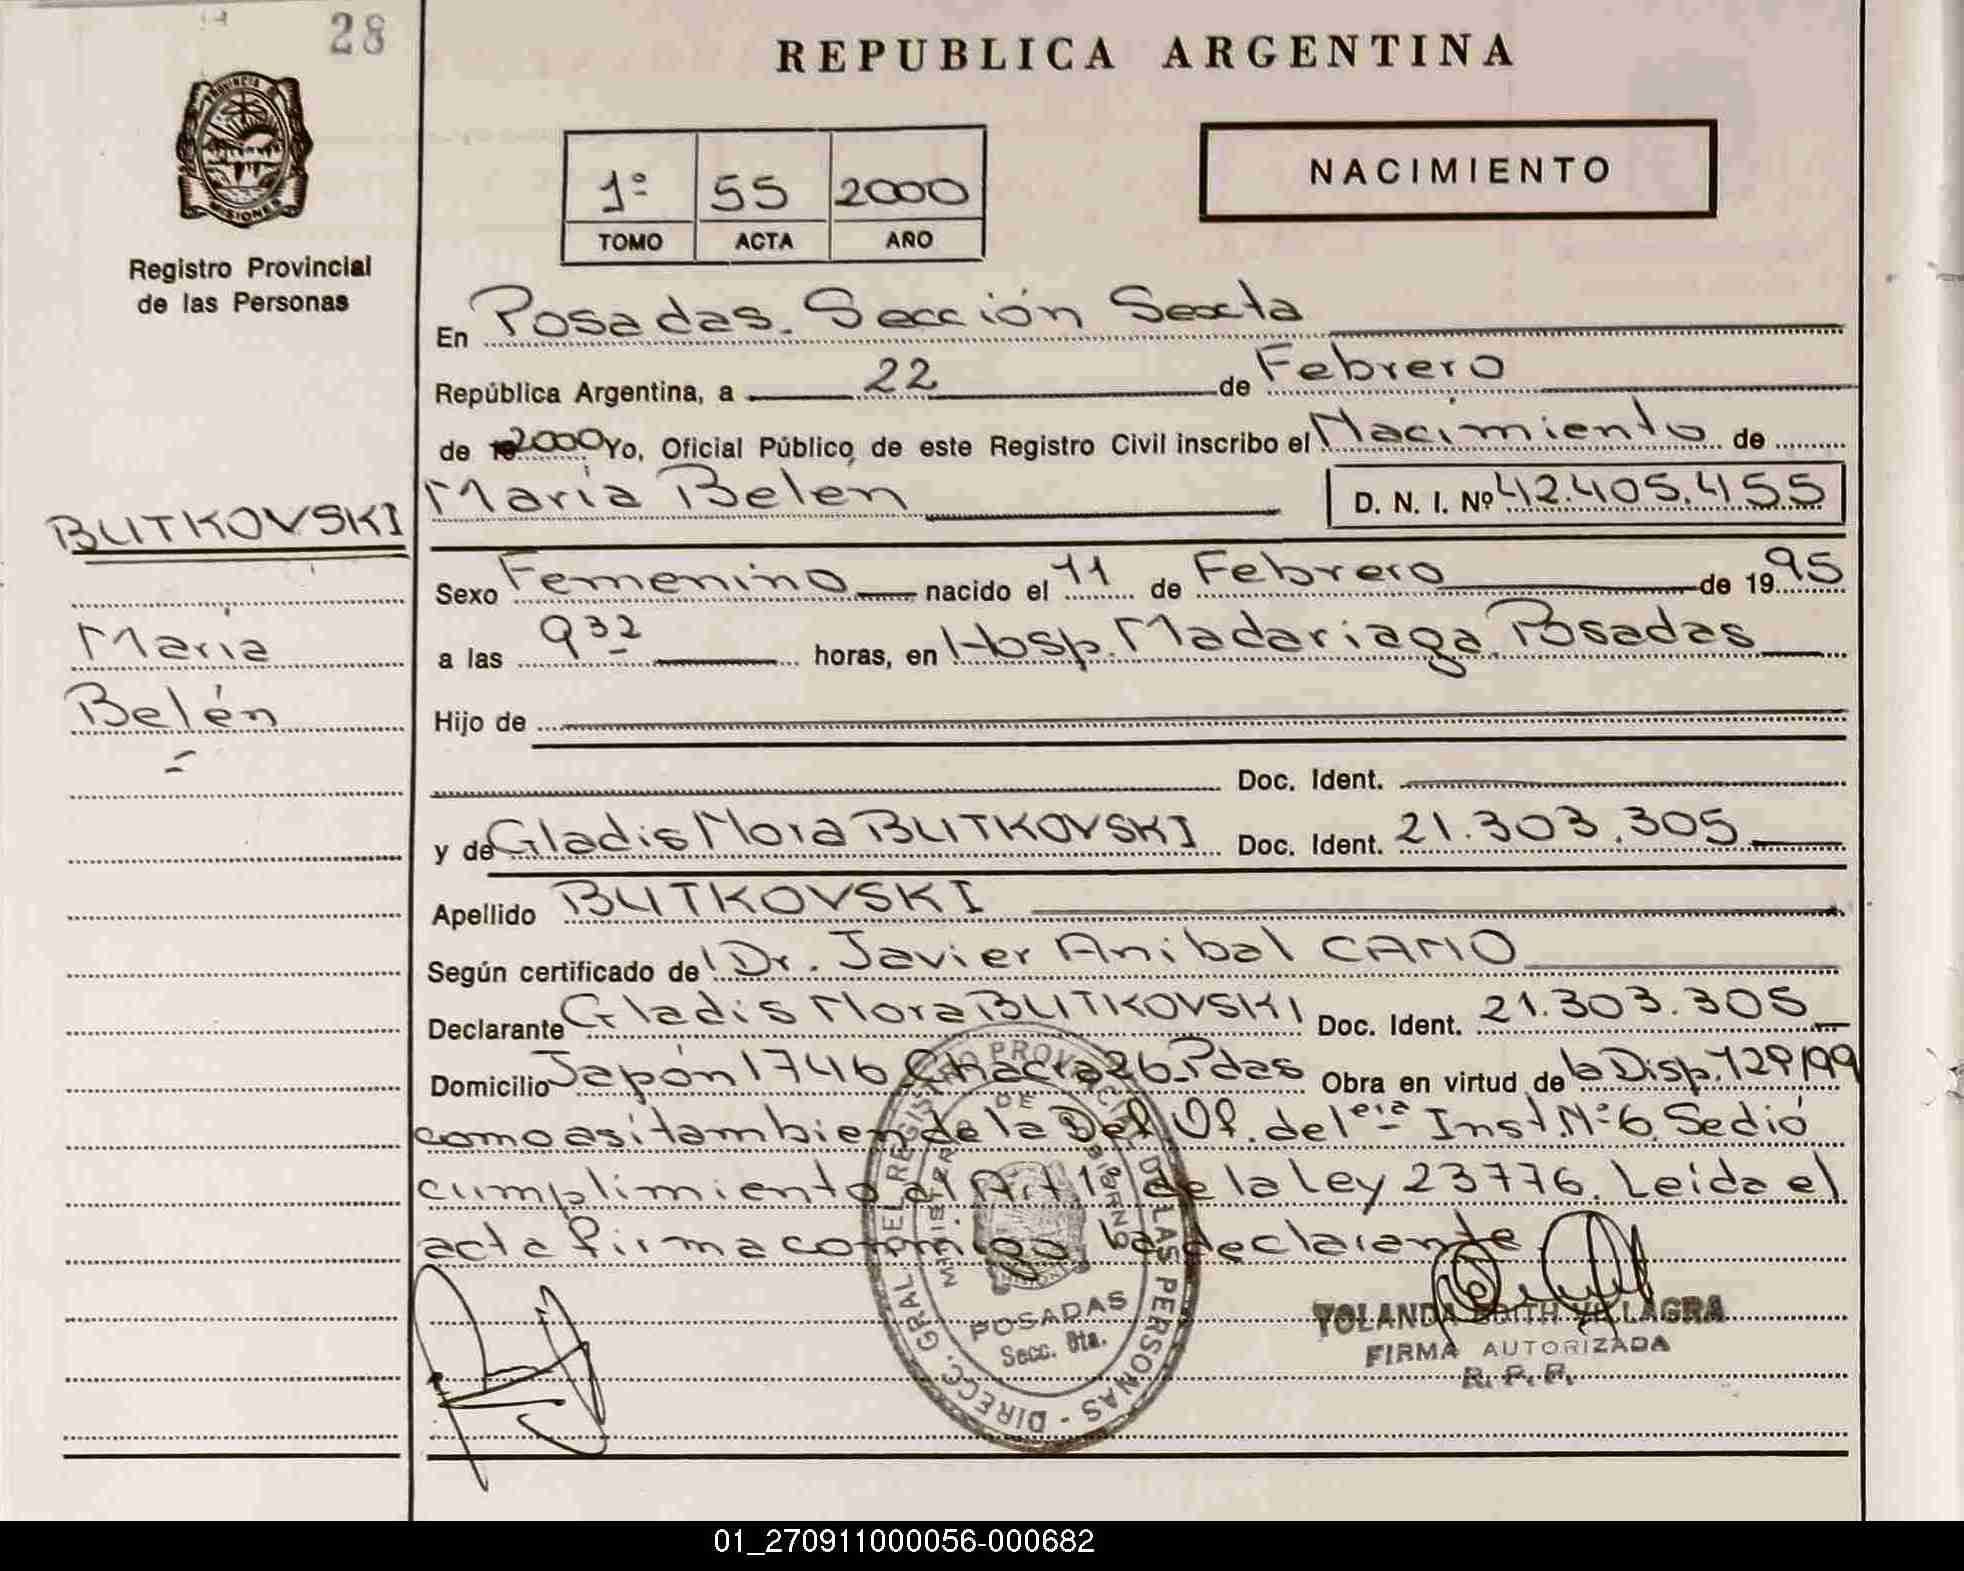 28
REPUBLICA ARGENTINA
PROVINCIA DE
MISIONES
Registro Provincial
de las Personas
1º 55 2000
TOMO ACTA AÑO
NACIMIENTO
En Posadas. Sección Sexta
República Argentina, a 22 de Febrero
de 2000 Yo, Oficial Público de este Registro Civil inscribo el Nacimiento de
BUTKOVSKI
María Belen D. N. I. Nº 42.405.455
Sexo Femenino nacido el 11 de Febrero de 1995
María
a las 9 32 horas, en Hosp. Madariaga Posadas
Belén
Hijo de
Doc. Ident.
y de Gladis Nora BUTKOVSKI Doc. Ident. 21.303.305
Apellido BUTKOVSKI
Según certificado de Dr. Javier Anibal CANO
Declarante Gladis Nora BUTKOVSKI Doc. Ident. 21.303.305
Domicilio Japón 1746 Chacra 26 Pdas Obra en virtud de la Disp. 129/99
como asi tambien de la Def. Of. del 1era Inst. Nº 6. Se dió
cumplimiento al Art 1º de la Ley 23776. Leída el
acta firma conmigo la declarante
DIRECC. GRAL DEL REGISTRO PROVINCIAL DE LAS PERSONAS
MINISTERIO DE GOBIERNO
POSADAS
Secc. 6ta.
YOLANDA EDITH VILLAGRA
FIRMA AUTORIZADA
R. P. P.
01_270911000056-000682